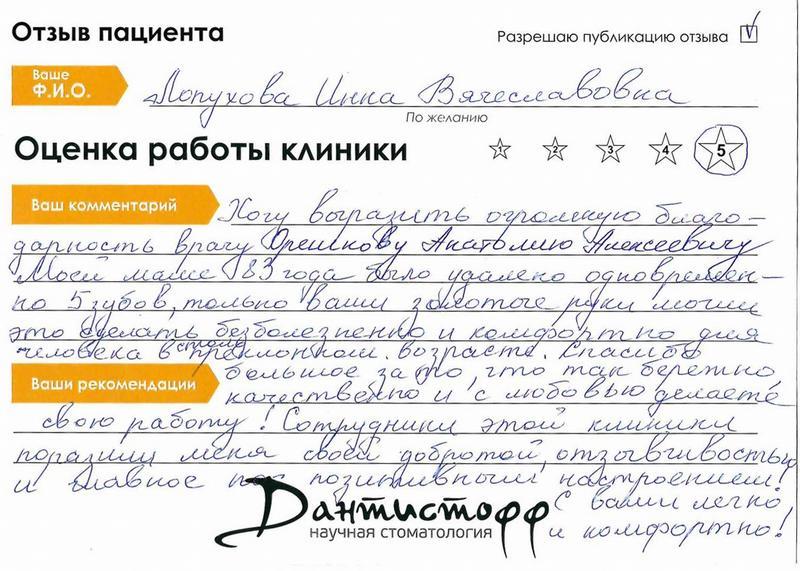 Отзыв пациента
Разрешаю публикацию отзыва
Ваше
Ф.И.О.
Лопухова Инна Вячеславовна
По желанию
Оценка работы клиники
1 2 3 4 5
Ваш комментарий
Хочу выразить огромную благо-
дарность врачу Орешкову Анатолию Алексеевичу
Моей маме 83 года было удалено одновремен-
но 5 зубов, только ваши золотые руки могли
это сделать безболезненно и комфортно для
человека в столь преклонном возрасте. Спасибо
Ваши рекомендации
большое за то, что так бережно,
качественно и с любовью делаете
свою работу! Сотрудники этой клиники
поразили меня своей добротой, отзывчивостью
и главное позитивным настроением!
С вами легко
и комфортно!
Дантистофф
научная стоматология